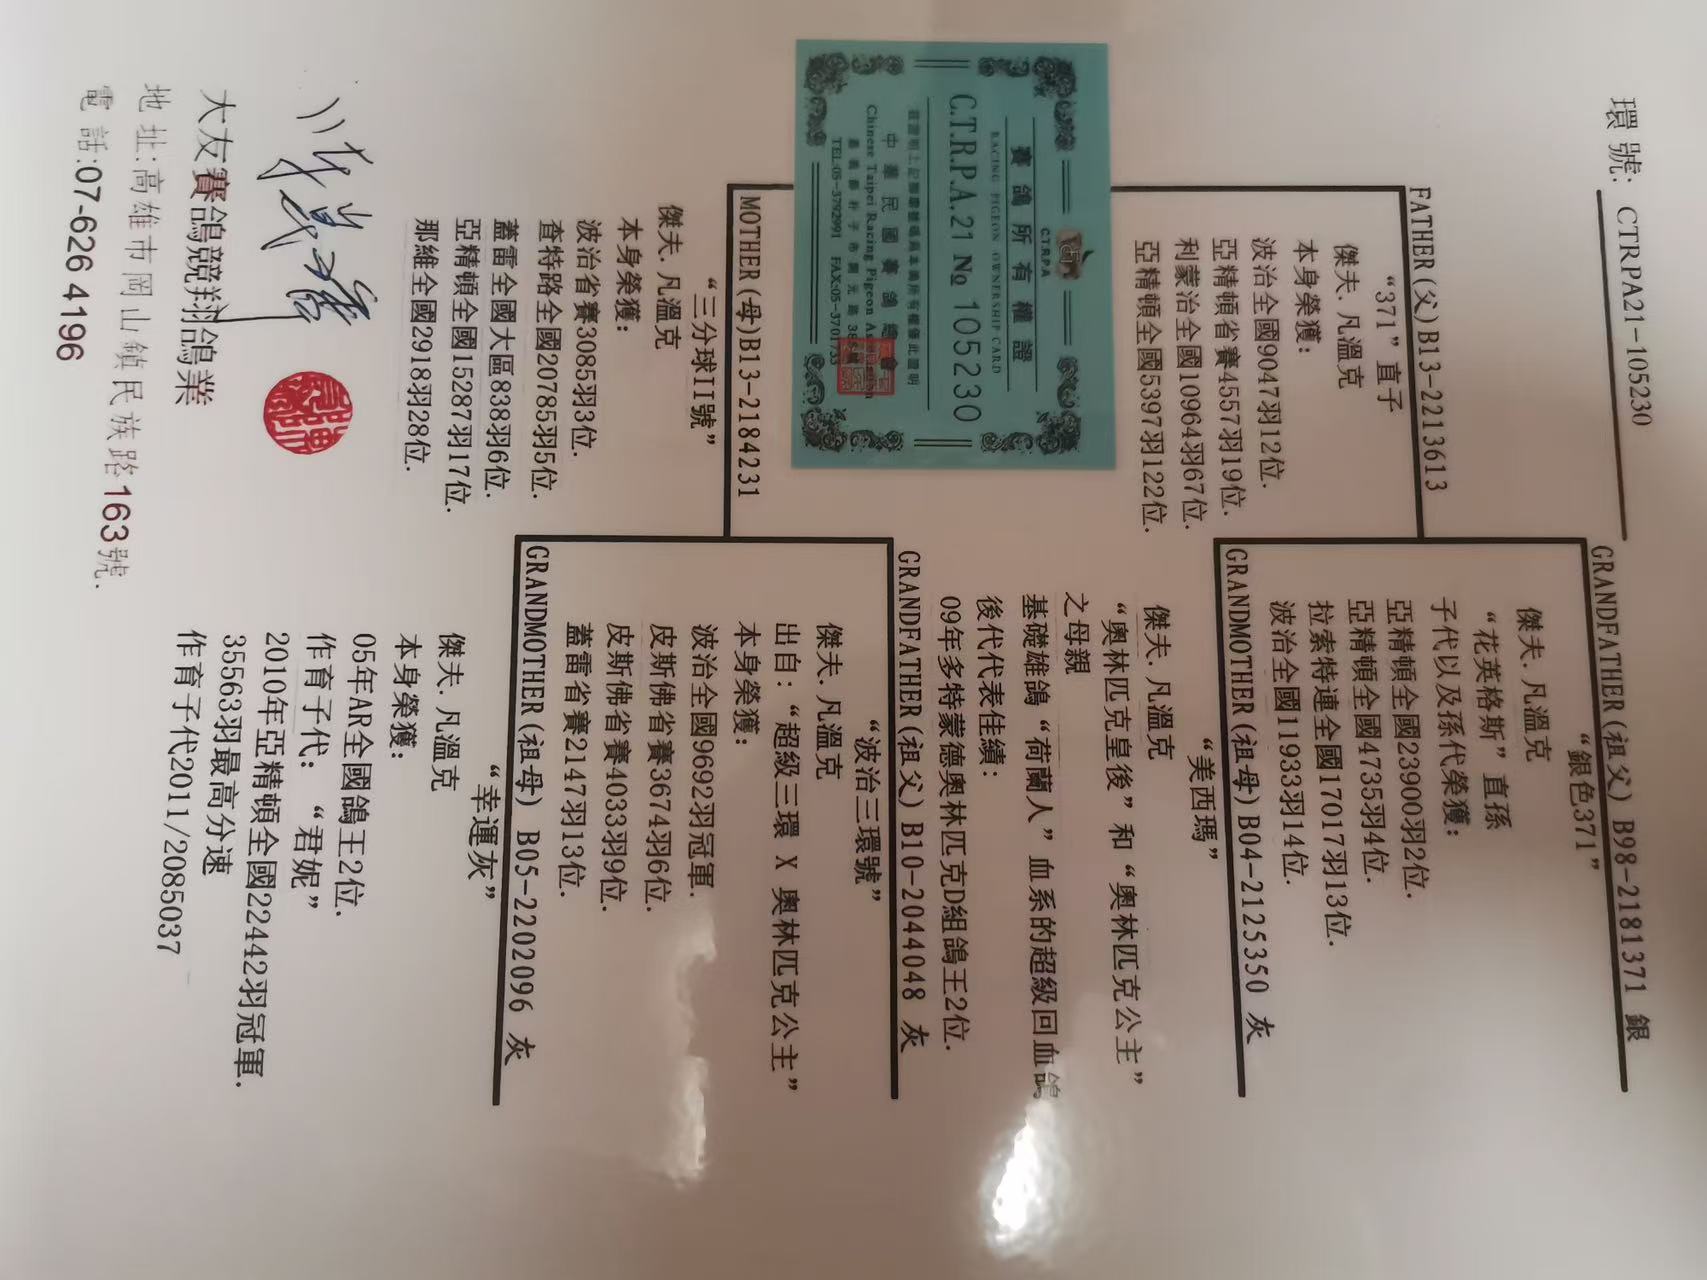 環 號: CTRPA21-105230
FATHER(父)B13-2213613
“371”直子
傑夫.凡溫克
本身榮獲:
波治全國9047羽12位.
亞精頓省賽4557羽19位.
利蒙治全國10964羽67位.
亞精頓全國5397羽122位.
C.T.R.P.A
賽鴿所有權證
RACING PIGEON OWNERSHIP CARD
C.T.R.P.A.21 № 105230
中華民國賽鴿總會
Chinese Taipei Racing Pigeon Association
TEL:05-3792991 FAX:05-3701733
MOTHER(母)B13-2184231
“三分球II號”
傑夫.凡溫克
本身榮獲:
波治省賽3085羽3位.
查特路全國20785羽5位.
蓋雷全國大區838羽6位.
亞精頓全國15287羽17位.
那維全國2918羽28位.
GRANDFATHER(祖父) B98-2181371 銀
“銀色371”
傑夫.凡溫克
“花英格斯”直孫
子代以及孫代榮獲:
亞精頓全國23900羽2位.
亞精頓全國4735羽4位.
拉索特連全國17017羽13位.
波治全國11933羽14位.
GRANDMOTHER(祖母)B04-2125350 灰
“美西瑪”
傑夫.凡溫克
“奧林匹克皇後”和“奧林匹克公主”
之母親
基礎雄鴿“荷蘭人”血系的超級回血鴿
後代代表佳績:
09年多特蒙德奧林匹克D組鴿王2位.
GRANDFATHER(祖父) B10-2044048 灰
“波治三環號”
傑夫.凡溫克
出自:“超級三環 X 奧林匹克公主”
本身榮獲:
波治全國9692羽冠軍.
皮斯佛省賽3674羽6位.
皮斯佛省賽4033羽9位.
蓋雷省賽2147羽13位.
GRANDMOTHER(祖母) B05-2202096 灰
“幸運灰”
傑夫.凡溫克
本身榮獲:
05年AR全國鴿王2位.
作育子代:“君妮”
2010年亞精頓全國22442羽冠軍.
35563羽最高分速
作育子代2011/2085037
大友賽鴿競翔鴿業
地址:高雄市岡山鎮民族路163號.
電話:07-626 4196